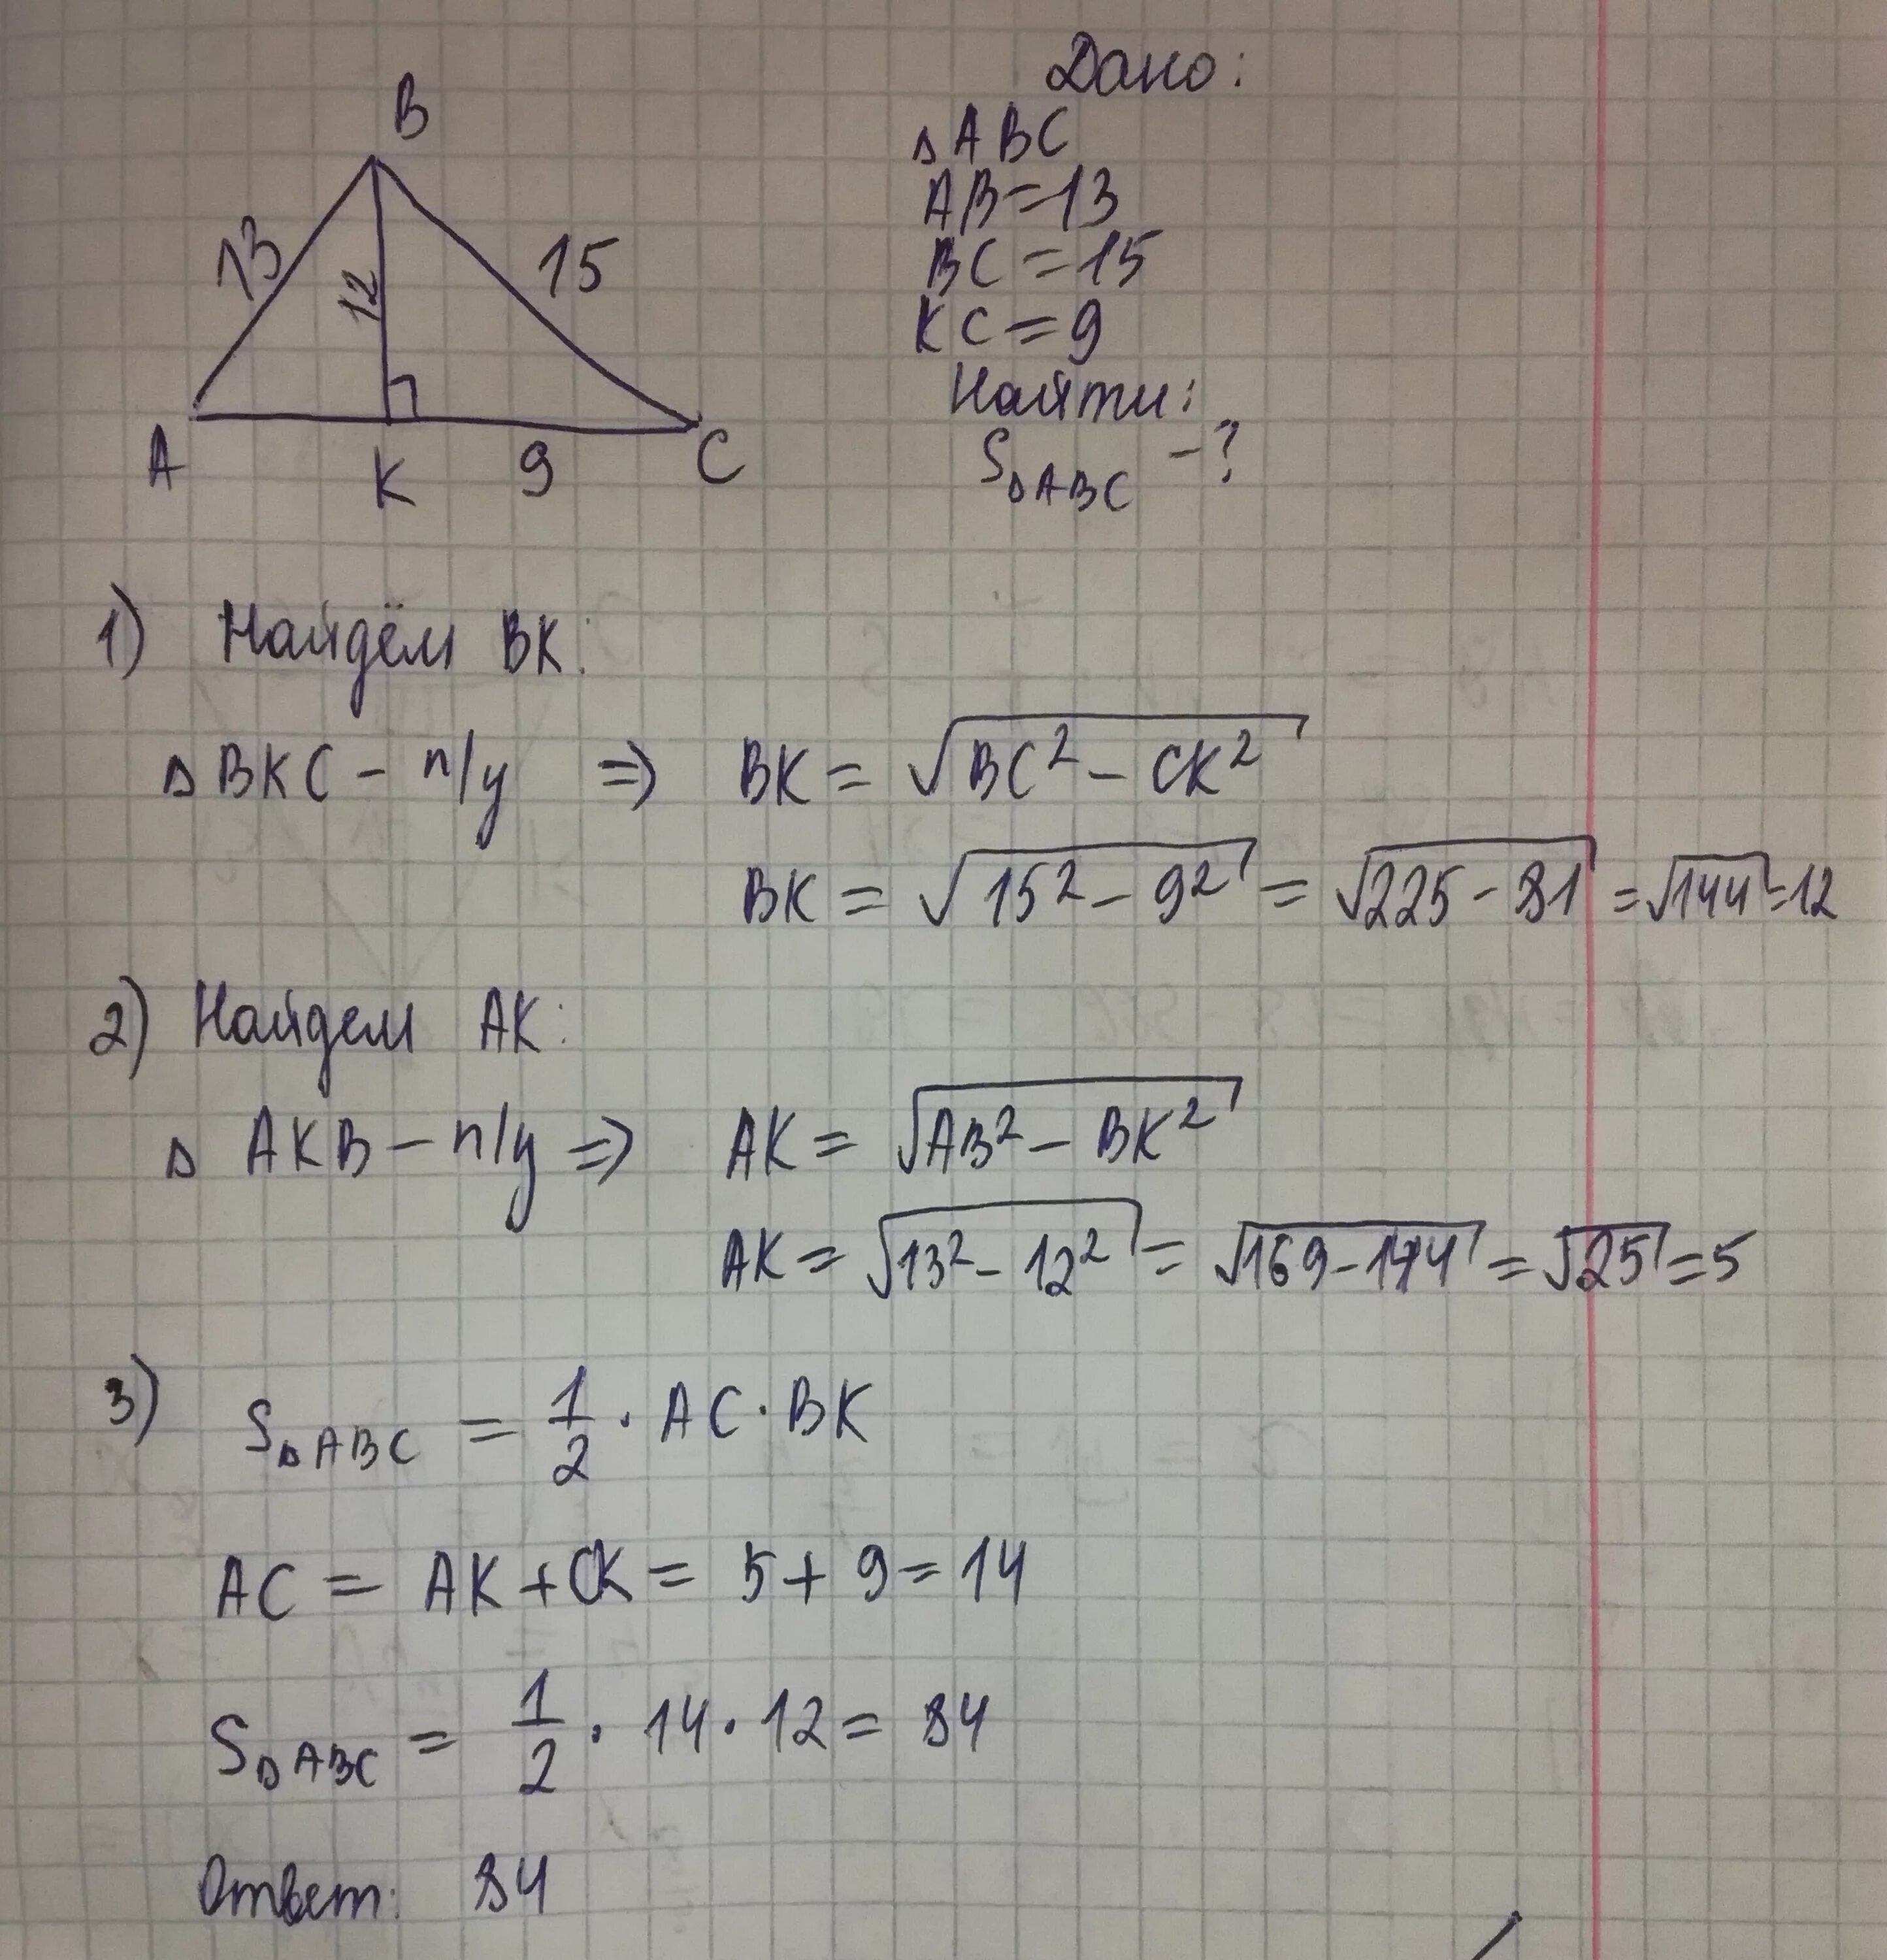 B
13
12
15
A
K
9
C
Дано:
△ABC
AB=13
BC=15
KC=9
Найти:
S△ABC -?
1) Найдём BK:
△BKC - п/у ⇒ BK = √(BC² - CK²)
BK = √(15² - 9²) = √(225 - 81) = √144 = 12
2) Найдем AK:
△AKB - п/у ⇒ AK = √(AB² - BK²)
AK = √(13² - 12²) = √(169 - 144) = √25 = 5
3) S△ABC = 1/2 · AC · BK
AC = AK + CK = 5 + 9 = 14
S△ABC = 1/2 · 14 · 12 = 84
Ответ: 84